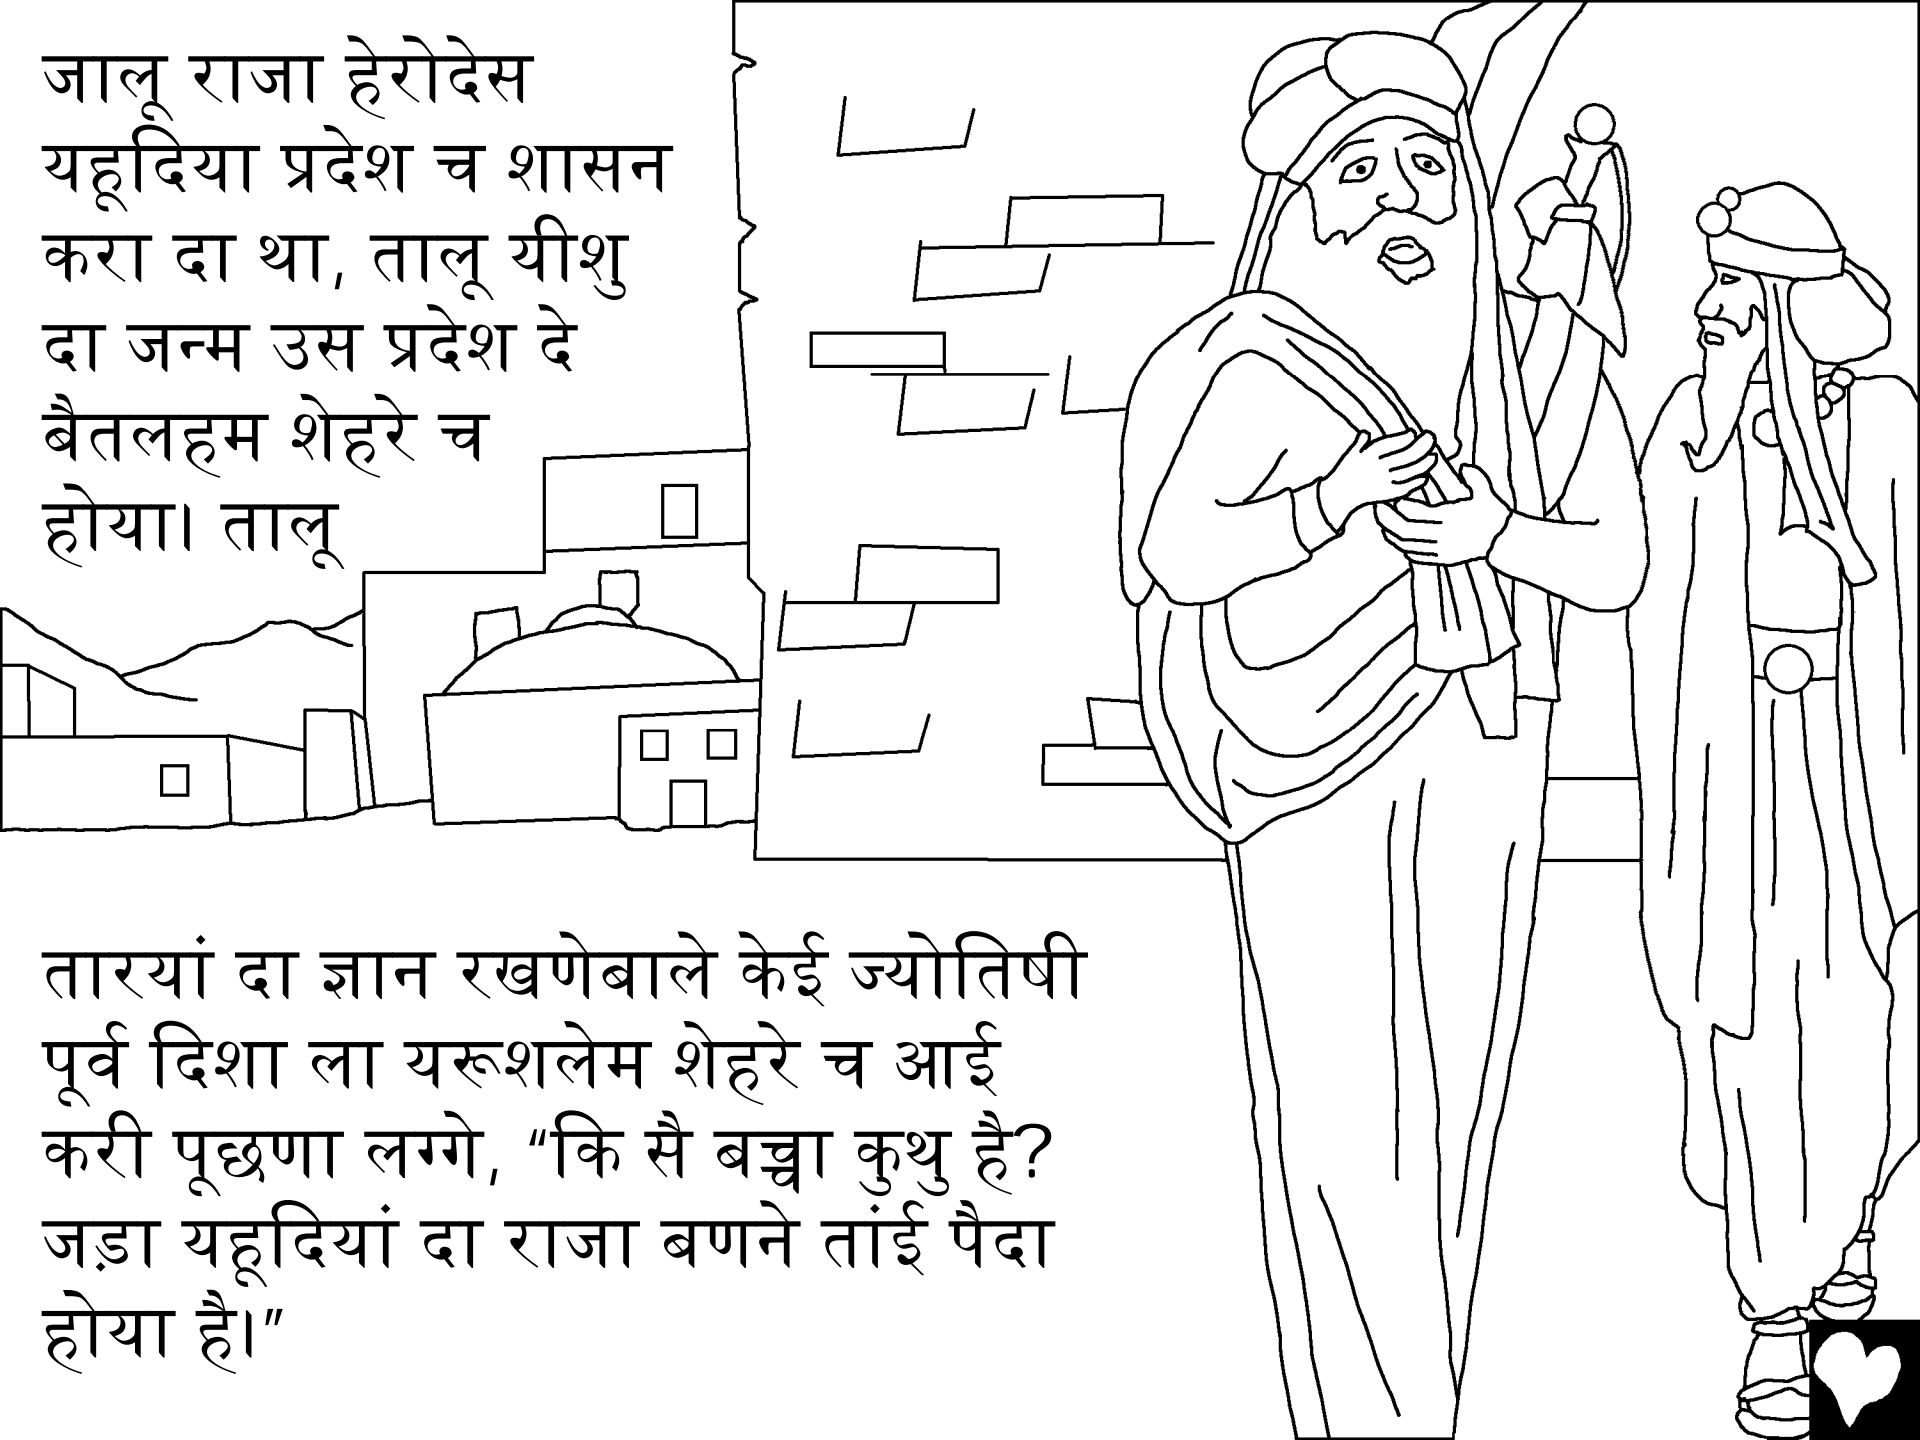 जालू राजा हेरोदेस
यहूदिया प्रदेश च शासन
करा दा था, तालू यीशु
दा जन्म उस प्रदेश दे
बैतलहम शेहरे च
होया। तालू
तारयां दा ज्ञान रखणेबाले केई ज्योतिषी
पूर्व दिशा ला यरूशलेम शेहरे च आई
करी पूछणा लग्गे, “कि सै बच्चा कुथु है?
जड़ा यहूदियां दा राजा बणने तांई पैदा
होया है।”